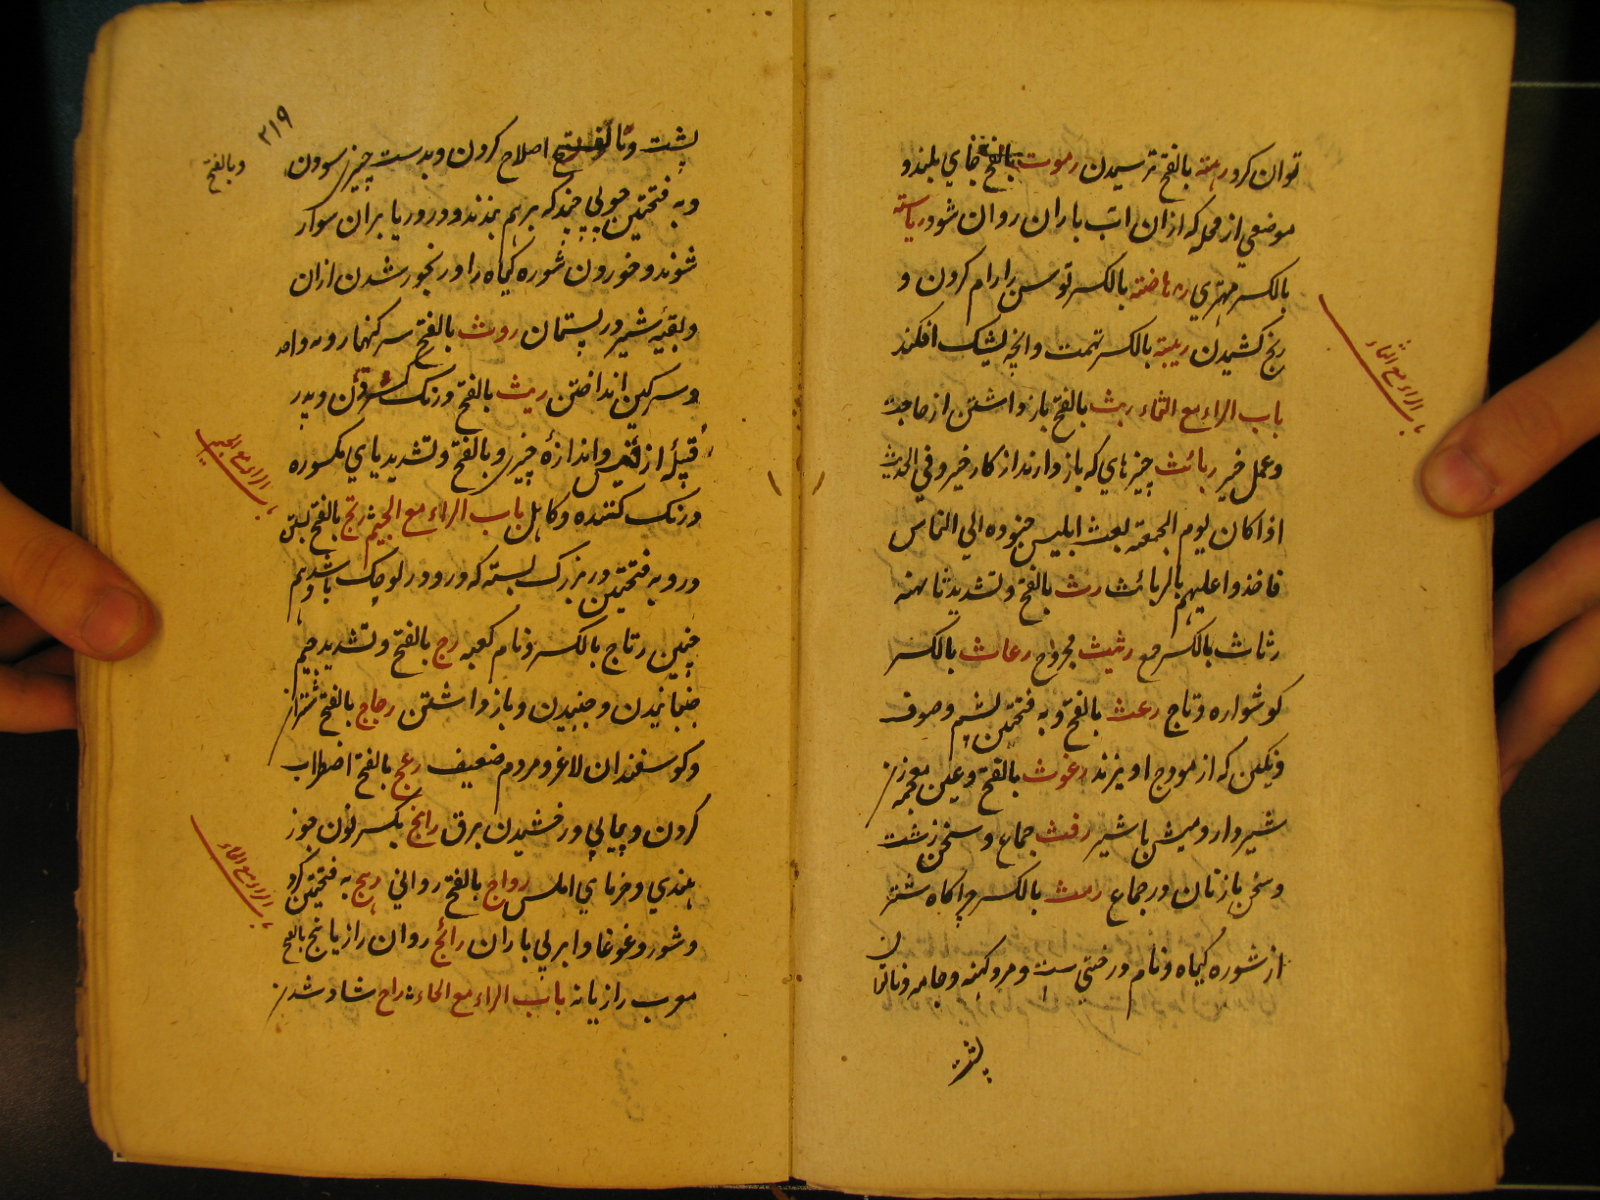 توان کرد رهبة بالفتح ترسیدن رموت بالفتح جای بلند و
موضعی از محله که ازان اب باران روان شود ریاسته
بالکسر مهتری ریاضة بالکسر توسن را رام کردن و
رنج کشیدن ریبة بالکسر تهمت و انچه بشک افکند
باب الراء مع الثاء ربث بالفتح باز داشتن از حاجت
و عمل خیر ربائث چیزهای که باز دارند از کار خیر و فی الحدیث
اذا کان یوم الجمعة بعث ابلیس جنوده الی الناس
فاخذوا علیهم بالربائث رث بالفتح و تشدید ثا کهنه
رثاث بالکسر جمع رثیث مجروح رعاث بالکسر
کوشواره و تاج رعث بالفتح و به فتحتین پشم و صوف
رنکین که از هودج اویزند رغوث بالفتح و غین معجمه بز
شیردار و میش با شیر رفث جماع و سخن زشت
و سخن با زنان در جماع رمث بالکسر چراکاه شتر
از شوره کیاه و نام درختی ست و مرد کهنه و جامه و ناتوان
پشت
باب الراء مع الثاء
۲۱۹
پشت و بالفتح اصلاح کردن و بدست چیزی سودن
وبالفتح
و به فتحتین چوبی چند که برهم بندند و در دریا بران سوار
شوند و خوردن شوره کیاه را و رنجور شدن ازان
و بقیه شیر در پستان روث بالفتح سرکنها روثه واحد
و سرکین انداختن ریث بالفتح درنک کردن و پدر
قبیله از قیس و اندازه چیزی و بالفتح و تشدید یای مکسوره
درنک کننده و کاهل باب الراء مع الجیم رتج بالفتح بستن
در و به فتحتین در بزرک بسته که در و در کوچک باشد و هم
چنین رتاج بالکسر و نام کعبه رج بالفتح و تشدید جیم
جنبانیدن و جنبیدن و باز داشتن رجاج بالفتح شتران
و کوسفندان لاغر و مردم ضعیف رعج بالفتح اضطراب
کردن و پیاپی درخشیدن برق رانج بکسر نون جوز
هندی و خرمای املس رواج بالفتح روانی رهج به فتحتین کرد
و شور و غوغا و ابر بی باران رائج روان رازیانج بالفتح
معرب رازیانه باب الراء مع الحاء راح شاد شدن
باب الراء مع الجیم
باب الراء مع الحاء